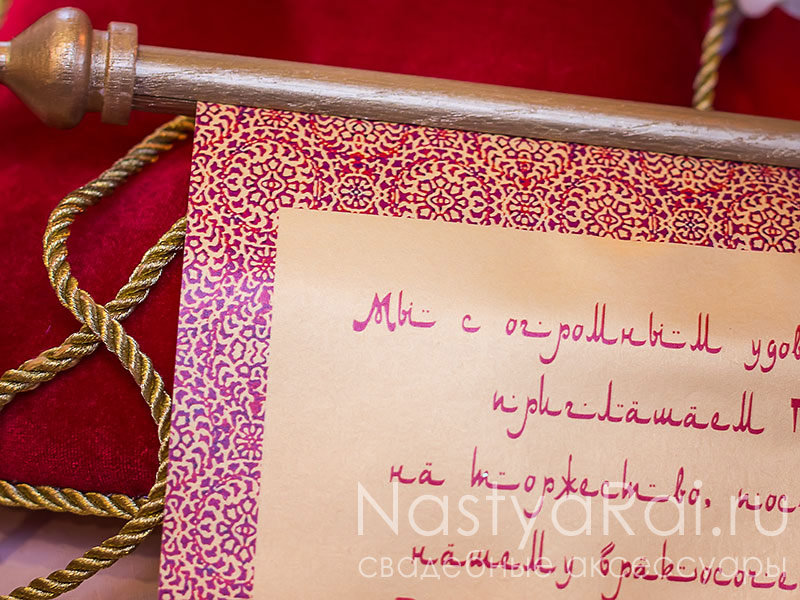 Мы с огромным удов
приглашаем
на торжество, пос
нашему бракосоче
NastyaRai.ru
свадебные аксессуары